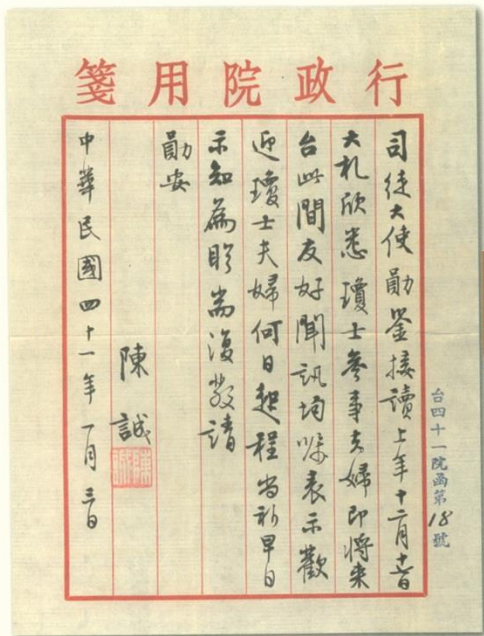 行政院用箋
台四十一院函第18號
司徒大使勛鑒接讀上年十二月十日
大札欣悉瓊士參事夫婦即將來
台此間友好聞訊均囑表示歡
迎瓊士夫婦何日起程尚祈早日
示知為盼耑復敬請
勛安
陳誠
中華民國四十一年一月三日